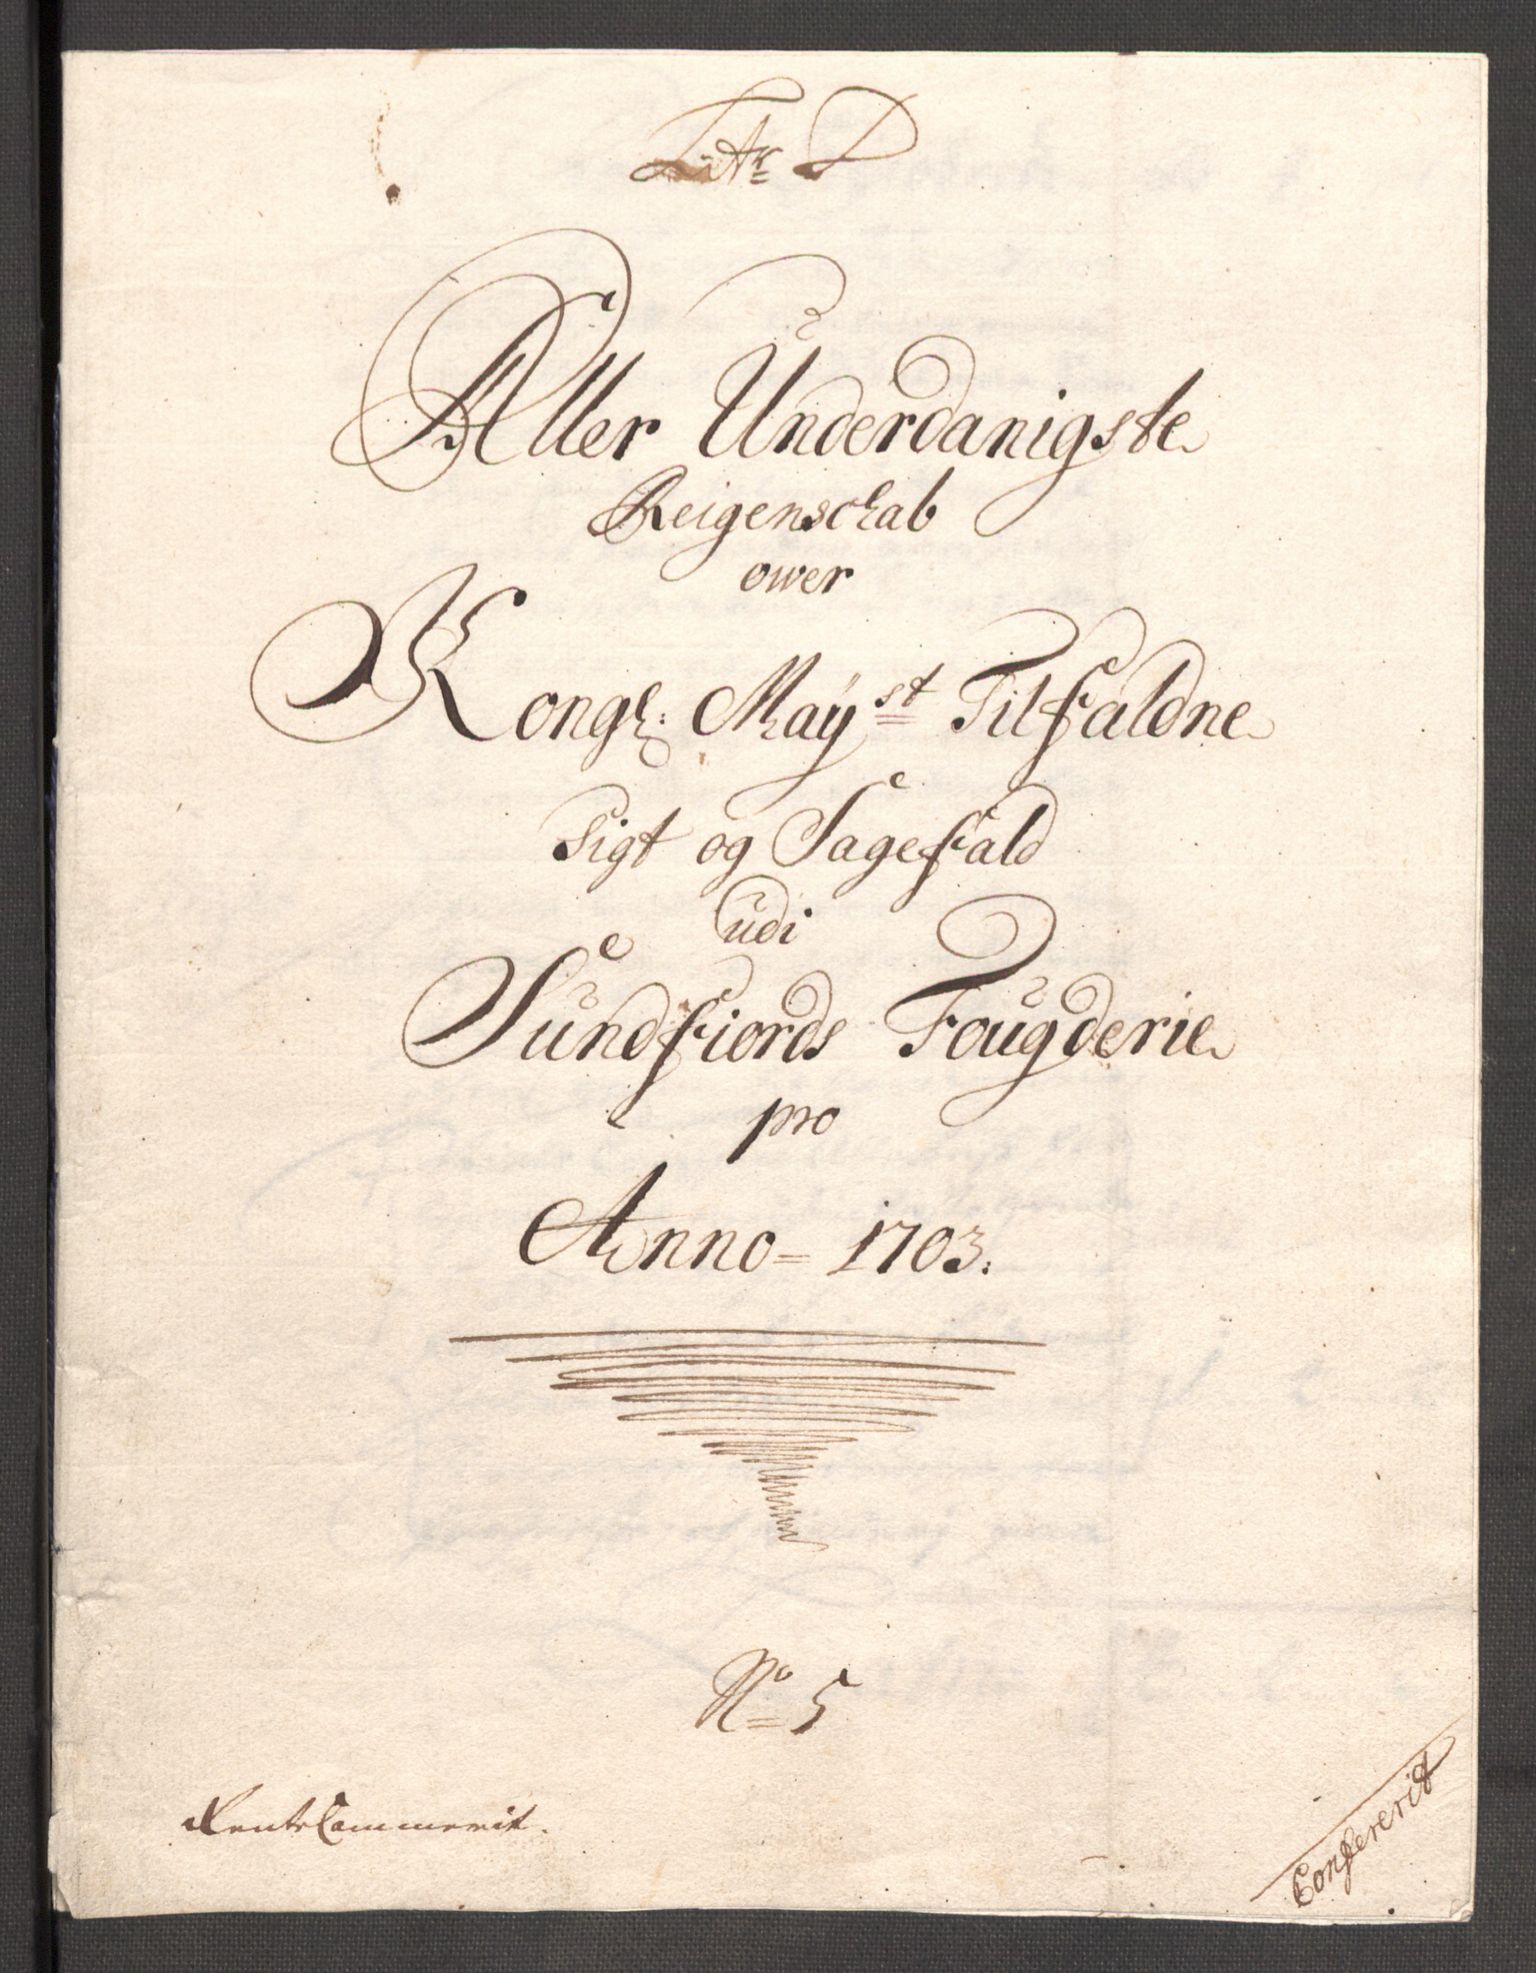 Litr D
Aller Underdanigste
Reigenschab
ower
Kongl: Mayst Tilfaldne
Sigt og Sagefald
udi
Sundfiords Fougderie
pro
Anno= 1703.
No 5
RenteCammerit.
Confererit